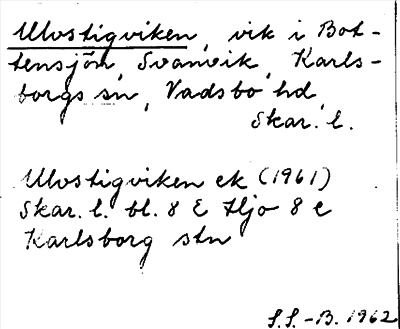 Ulvstigviken, vik i Bot-
tensjön, Svanvik, Karls-
borgs sn, Vadsbo hd,
Skar. l.
Ulvstigviken ek (1961)
Skar. l. bl. 8 E Hjo 8 e
Karlsborg stn
S.S.-B. 1962